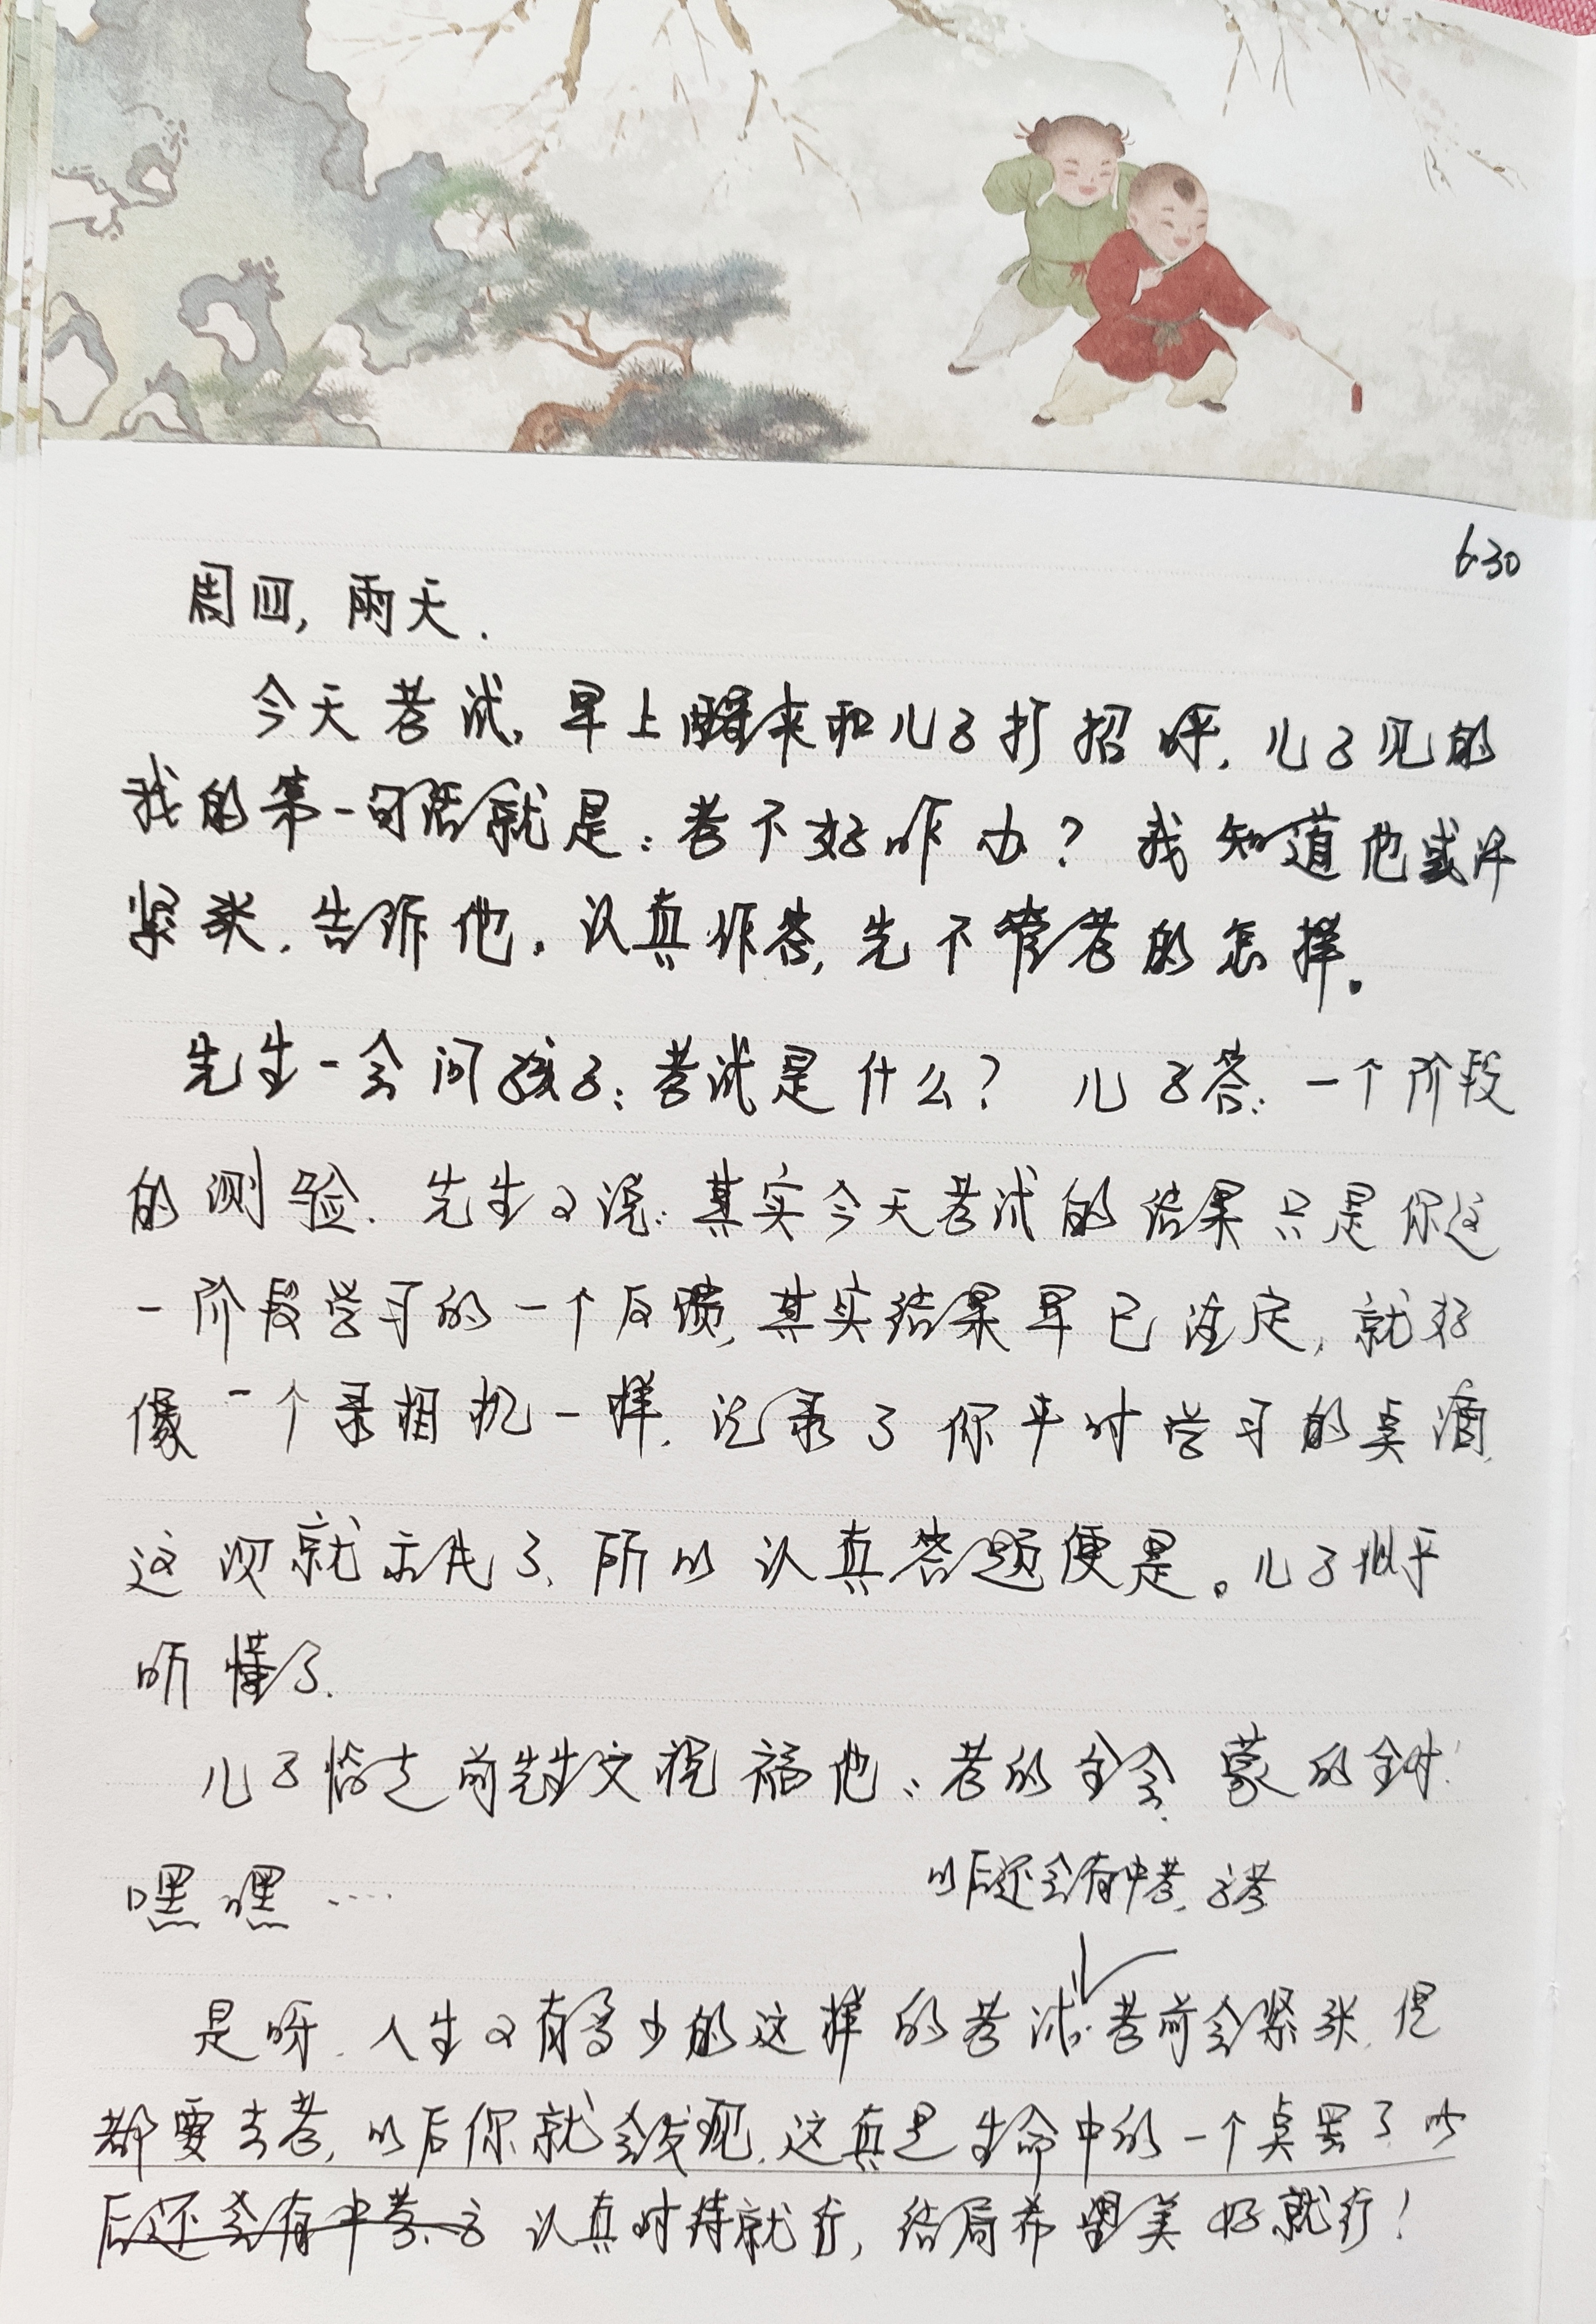 6.30
周四, 雨天.
今天考试, 早上醒来和儿子打招呼, 儿子见的
我的第一句话就是: 考不好咋办? 我知道他或许
紧张. 告诉他, 认真作答, 先不管考的怎样。
先生一会问孩子: 考试是什么? 儿子答: 一个阶段
的测验. 先生又说: 其实今天考试的结果只是你这
一阶段学习的一个反馈, 其实结果早已注定, 就好
像一个录相机一样, 记录了你平时学习的点滴,
这次就示先了, 所以认真答题便是。儿子似乎
听懂了.
儿子临走前先生又祝福他: 考的全会, 蒙的全对!
嘿嘿……
以后还会有中考, 高考
是呀, 人生又有多少的这样的考试. 考前会紧张, 但
都要去考, 以后你就会发现, 这真是生命中的一个点罢了, 以
后还会有中考, 认真对待就行, 结局希望美好就行!